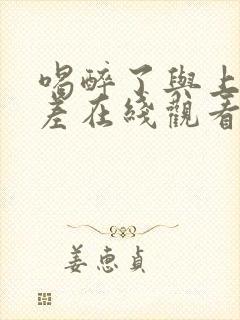 喝醉了與上
差在綫觀看
姜恵貞